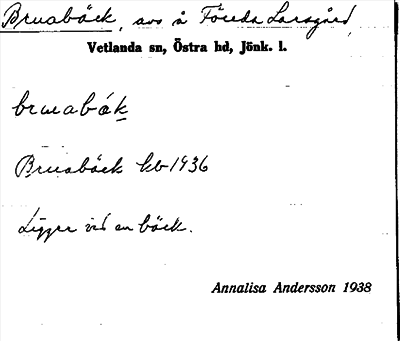 Bruabäck, avs å Föreda Larsgård,
Vetlanda sn, Östra hd, Jönk. l.
bruabäk
Bruabäck kb 1936
Ligger vid en bäck.
Annalisa Andersson 1938